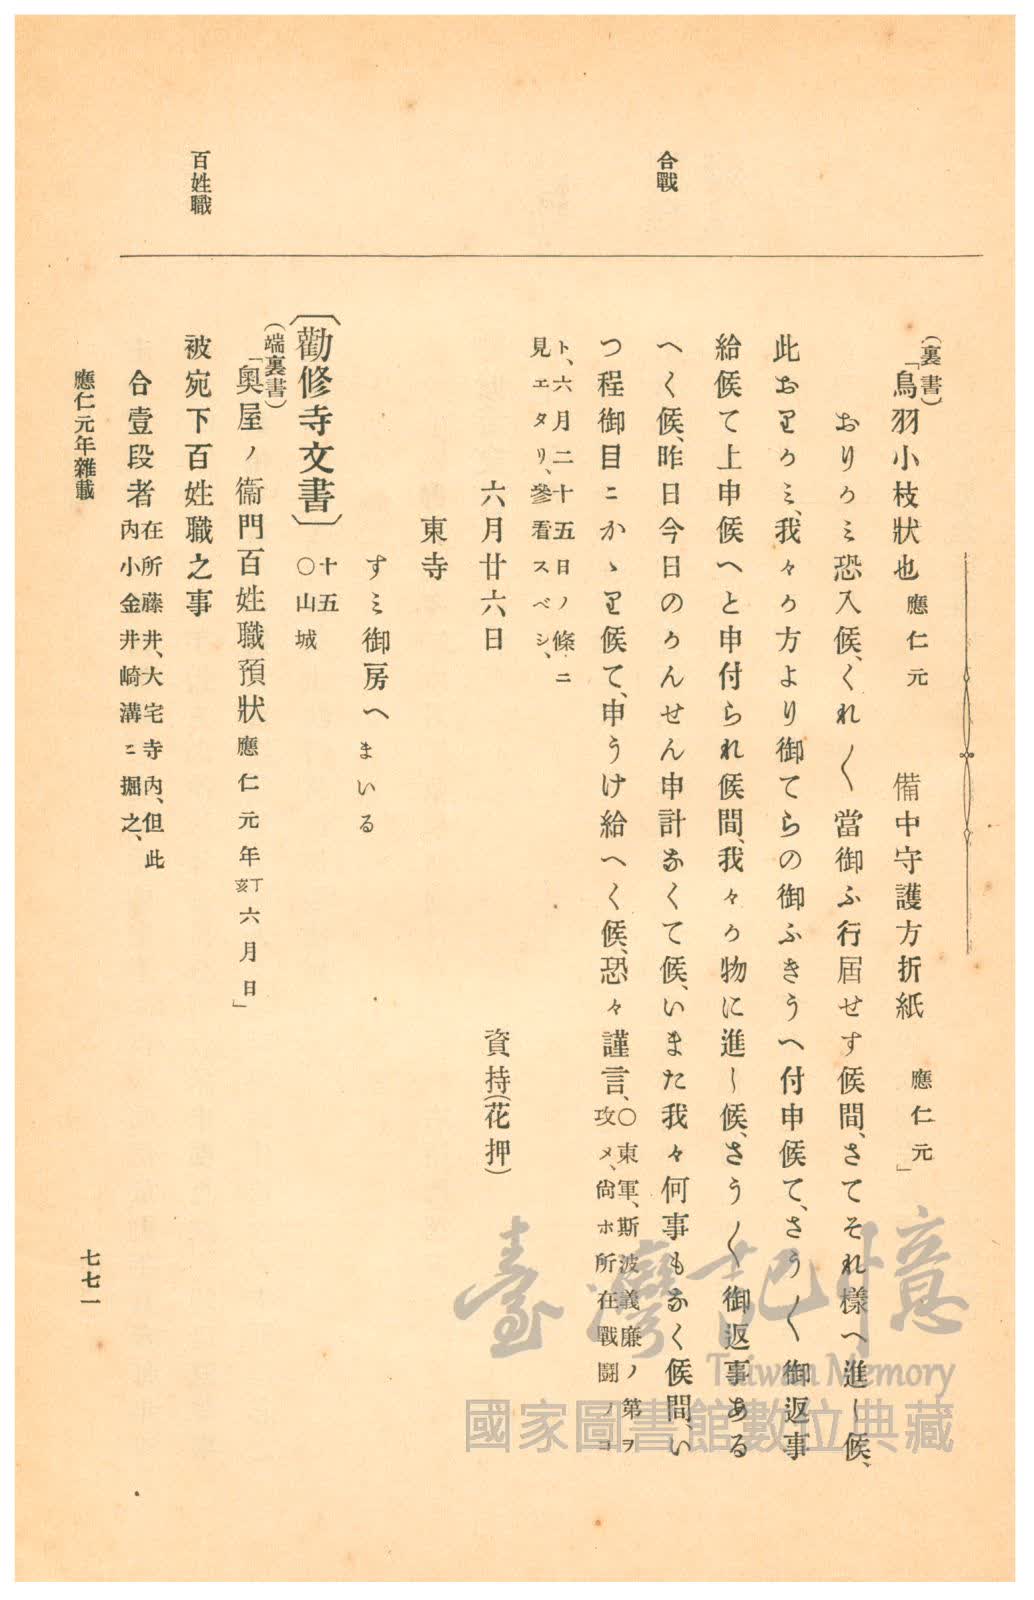 (裏書)
「鳥羽小枝狀也 應仁元 備中守護方折紙 應仁元」
おりゝミ恐入候、くれ〳〵當御ふ行屆せす候間、さてそれ樣へ進し候、
此おりゝミ、我々ゝ方より御てらの御ふきうへ付申候て、さう〳〵御返事
給候て上申候へと申付られ候間、我々ゝ物に進し候、さう〳〵御返事ある
合戰
へく候、昨日今日のゝんせん申計なくて候、いまた我々何事もなく候間、い
つ程御目ニかゝり候て、申うけ給へく候、恐々謹言、○東軍、斯波義廉ノ第ヲ
攻メ、尙ホ所在戰鬪ノコ
ト、六月二十五日ノ條ニ
見エタリ、參看スベシ、
六月廿六日 資持(花押)
東寺
すミ御房へまいる
〔勸修寺文書〕十五
○山城
(端裏書)
「奧屋ノ衞門百姓職預狀應仁元年丁亥六月日」
百姓職
被宛下百姓職之事
合壹段者在所藤井、大宅寺內、但此
內小金井崎溝ニ掘之、
應仁元年雜載
七七一
臺灣記憶
Taiwan Memory
國家圖書館數位典藏